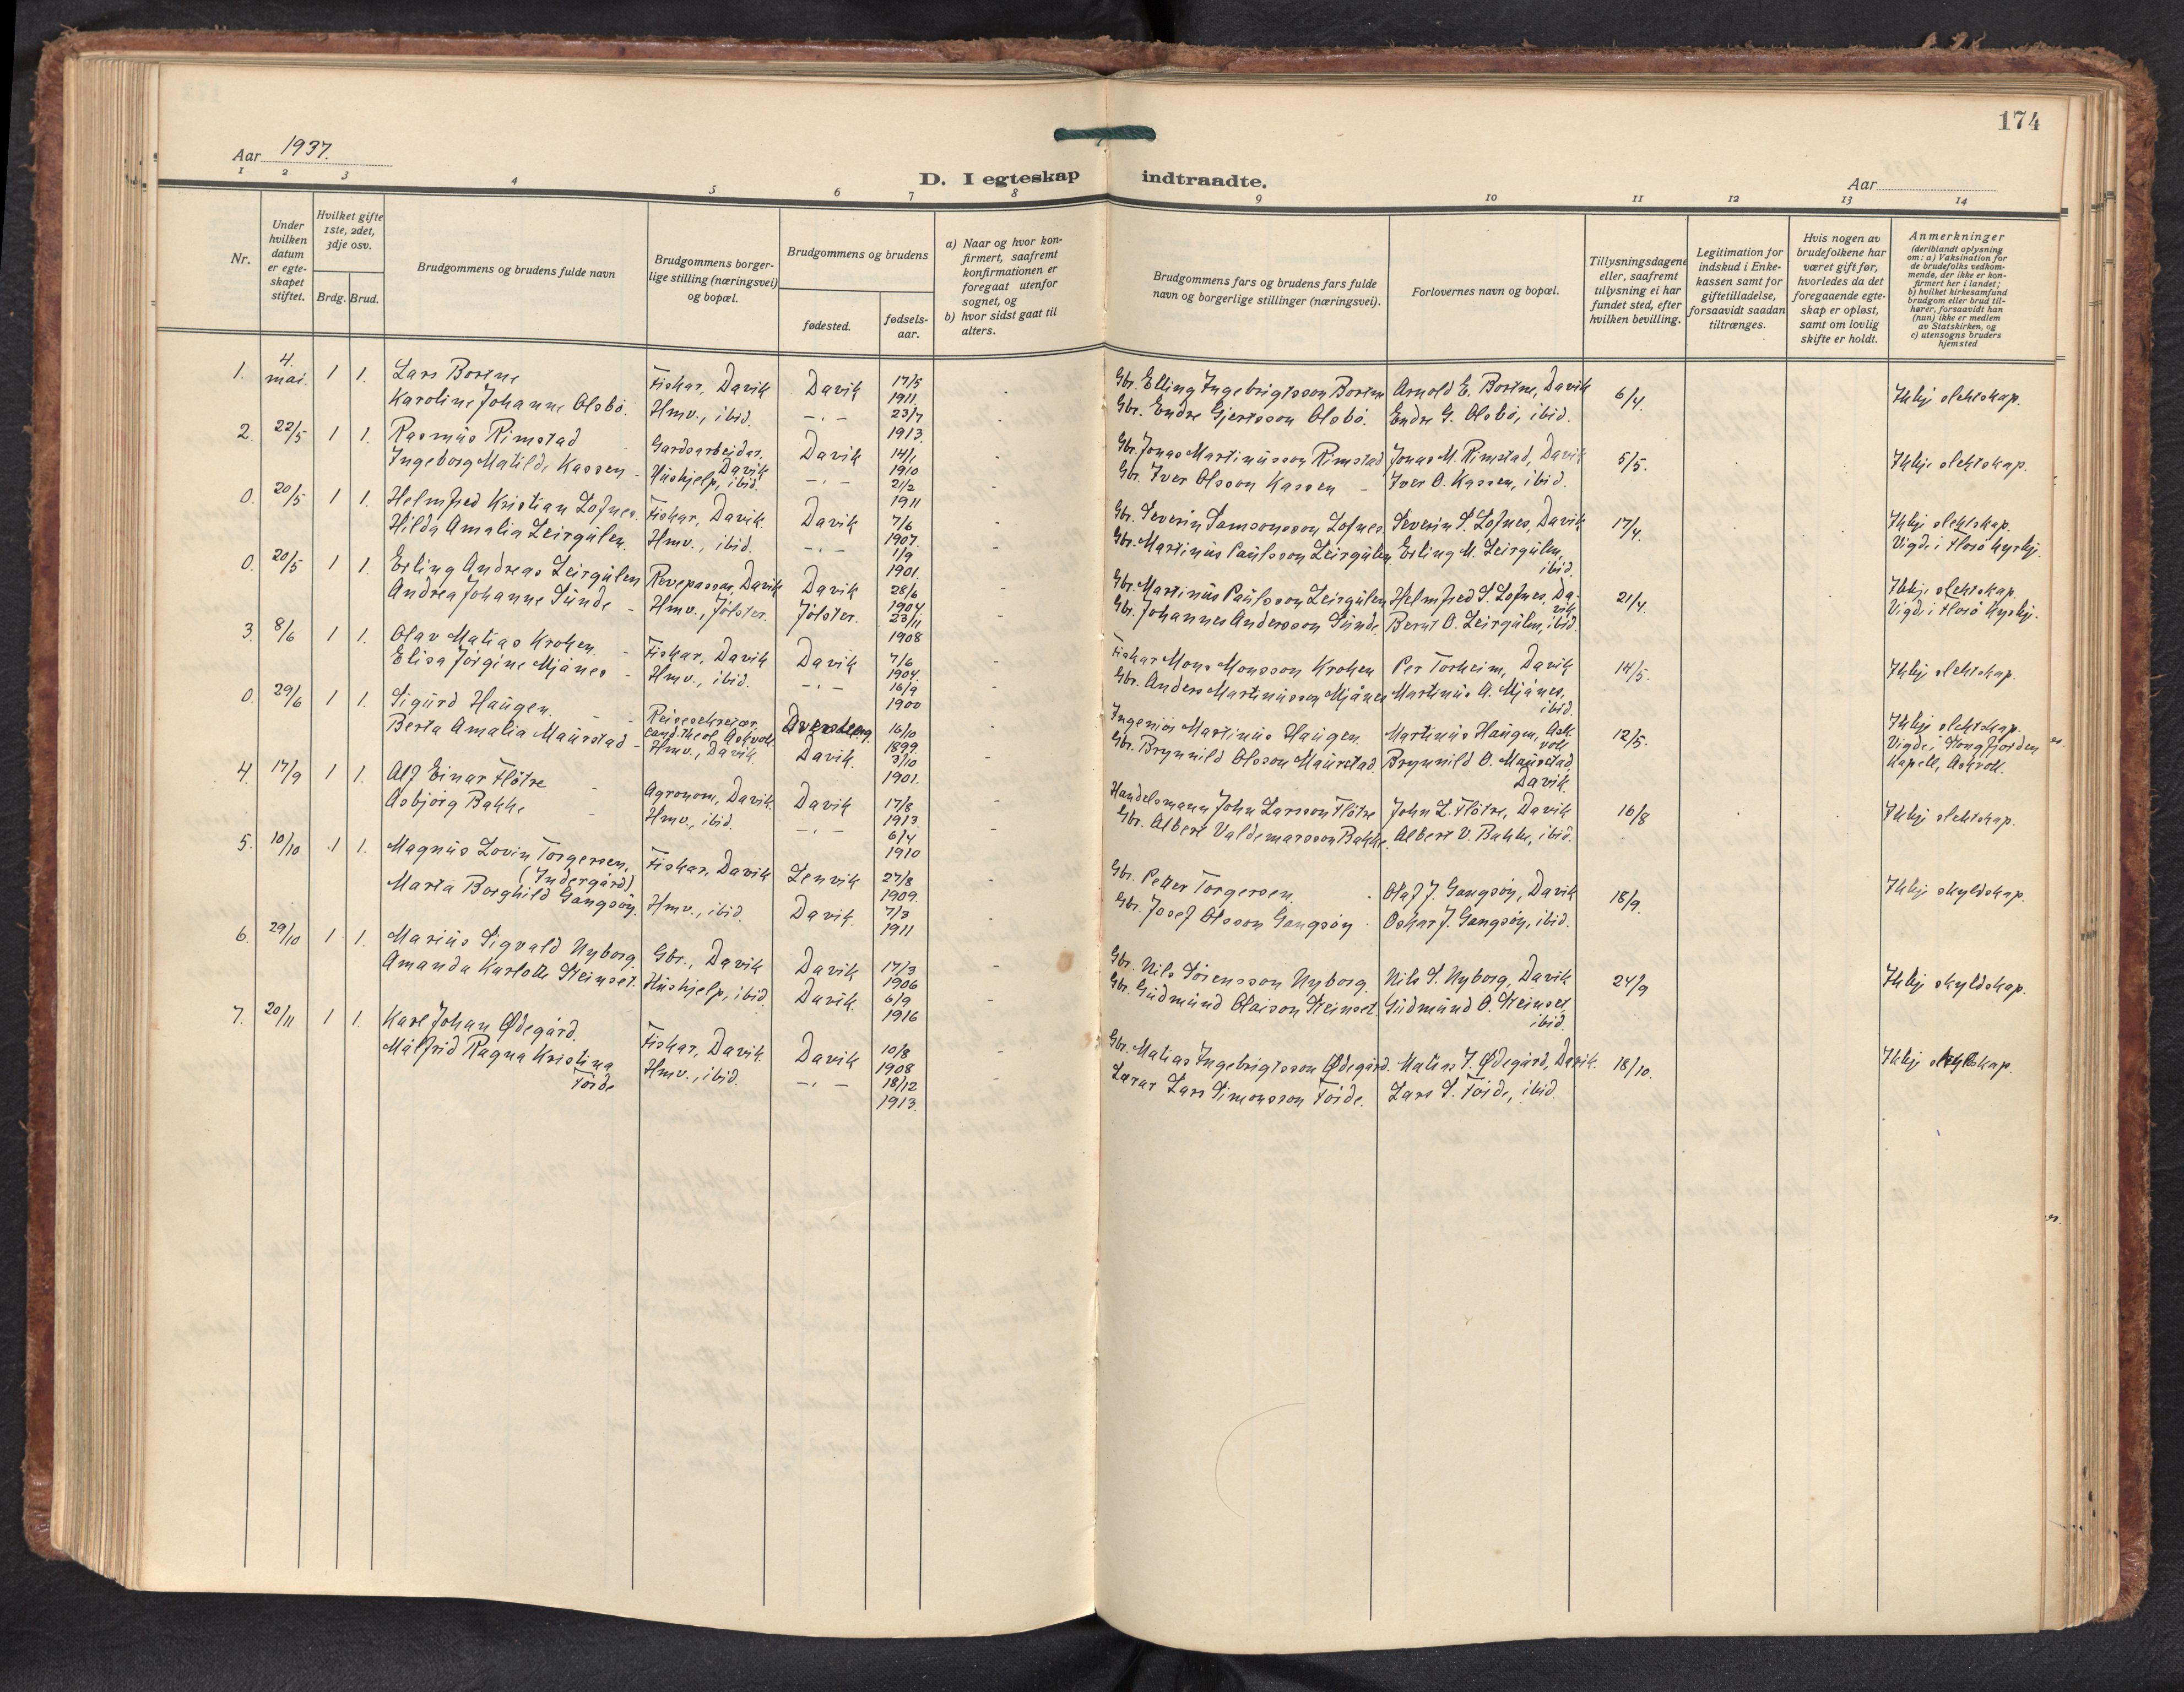 174
Aar 1937.
D. I egteskap indtraadte.
Aar
1 2 3 4 5 6 7 8 9 10 11 12 13 14
Nr.
Under hvilken datum er egte-skapet stiftet.
Hvilket gifte 1ste, 2det, 3dje osv.
Brdg. Brud.
Brudgommens og brudens fulde navn
Brudgommens borger-lige stilling (næringsvei) og bopæl.
Brudgommens og brudens
fødested.
fødsels-aar.
a) Naar og hvor kon-firmert, saafremt konfirmationen er foregaat utenfor sognet, og
b) hvor sidst gaat til alters.
Brudgommens fars og brudens fars fulde navn og borgerlige stillinger (næringsvei).
Forlovernes navn og bopæl.
Tillysningsdagene eller, saafremt tillysning ei har fundet sted, efter hvilken bevilling.
Legitimation for indskud i Enke-kassen samt for giftetilladelse, forsaavidt saadan tiltrænges.
Hvis nogen av brudefolkene har været gift før, hvorledes da det foregaaende egte-skap er opløst, samt om lovlig skifte er holdt.
Anmerkninger
(deriblandt oplysning om: a) Vaksination for de brudefolks vedkom-mende, der ikke er kon-firmert her i landet; b) hvilket kirkesamfund brudgom eller brud til-hører, forsaavidt han (hun) ikke er medlem av Statskirken, og c) utensogns bruders hjemsted
1. 4. mai. 1 1. Lars Bortne Fiskar, Davik Davik 17/5 1911. Gbr. Elling Ingebrigtsson Bortne Arnold E. Bortne, Davik 6/4. Ikkje slektskap.
Karoline Johanne Olsbö. Hmv., ibid. -,- 23/7 1913. Gbr. Endre Gjertsson Olsbö. Endre G. Olsbö, ibid.
2. 22/5 1 1. Rasmus Rimstad Gardsarbeidar, Davik Davik 14/1 1910 Gbr. Jonas Martinusson Rimstad Jonas M. Rimstad, Davik 5/5. Ikkje slektskap.
Ingeborg Matilde Kassen - Hushjelp, ibid. -,- 21/2 1911 Gbr. Iver Olsson Kassen - Iver O. Kassen, ibid.
0. 20/5 1 1. Helmfred Kristian Lofnes. Fiskar, Davik. Davik 7/6 1907. Gbr. Severin Samsonsson Lofnes. Severin S. Lofnes, Davik 17/4. Ikkje slektskap.
Hilda Amalia Leirgulen. Hmv., ibid. -,- 1/9 1901. Gbr. Martinus Paulsson Leirgulen Erling M. Leirgulen, ibid. Vigde i Florö kyrkj.
0. 20/5 1 1. Erling Andreas Leirgulen Revepassar, Davik Davik 28/6 1904. Gbr. Martinus Paulsson Leirgulen Helmfred S. Lofnes, Davik 21/4. Ikkje slektskap.
Andrea Johanne Sunde - Hmv., Jölster. Jölster. 23/11 1908 Gbr. Johannes Andersson Sunde. Bernt O. Leirgulen, ibid. Vigde i Florö kyrkj.
3. 8/6 1 1. Olav Matias Kroken. - Fiskar, Davik Davik 7/6 1904. Fiskar Mons Monsson Kroken Per Torheim, Davik 14/5. Ikkje slektskap.
Elisa Jörgine Mjånes - Hmv., ibid. -,- 16/9 1900 Gbr. Anders Martinusson Mjånes Martinus A. Mjånes, ibid.
0. 29/6 1 1. Sigurd Haugen. - Reisesekretær, cand. theol. Askvoll. Dverberg. 16/10 1899. Ingeniör Martinus Haugen. Martinus Haugen, Askvoll 12/5. Ikkje slektskap.
Berta Amalia Maurstad - Hmv., Davik. Davik. 3/10 1901. Gbr. Brynnild Olsson Maurstad. Brynnild O. Maurstad, Davik. Vigde i Stongfjorden Kapell, Askvoll.
4. 17/9 1 1. Alf Einar Flötre - Agronom, Davik Davik 17/8 1913. Handelsmann John Larsson Flötre John L. Flötre, Davik 16/8 Ikkje slektskap.
Asbjörg Bakke - Hmv., ibid. -,- 6/4 1910 Gbr. Albert Valdemarsson Bakke. Albert V. Bakke, ibid.
5. 10/10 1 1. Magnus Lovin Torgersen, (Indergård) Fiskar, Davik Lenvik 27/8 1909. Gbr. Petter Torgersen. Olaf J. Gangsöy, Davik 18/9. Ikkje skyldskap.
Marta Borghild Gangsöy. Hmv., ibid. Davik. 7/3 1911 Gbr. Josef Olsson Gangsöy. Oskar J. Gangsöy, ibid.
6. 29/10 1 1. Marius Sigvald Nyborg. Gbr., Davik Davik 17/3 1906 Gbr. Nils Sörensson Nyborg. Nils S. Nyborg, Davik 24/9 Ikkje skyldskap.
Amanda Karlotte Steinset. Hushjelp, ibid. Davik. 6/9 1916 Gbr. Gudmund Olaison Steinset Gudmund O. Steinset, ibid.
7. 20/11 1 1. Karl Johan Ødegård. Fiskar, Davik Davik 10/8 1908 Gbr. Matias Ingebrigtsson Ødegård. Matias I. Ødegård, Davik. 18/10. Ikkje skyldskap.
Målfrid Ragna Kristina Förde Hmv., ibid. -,- 18/12 1913. Lærar Lars Simonsson Förde. Lars S. Förde, ibid.